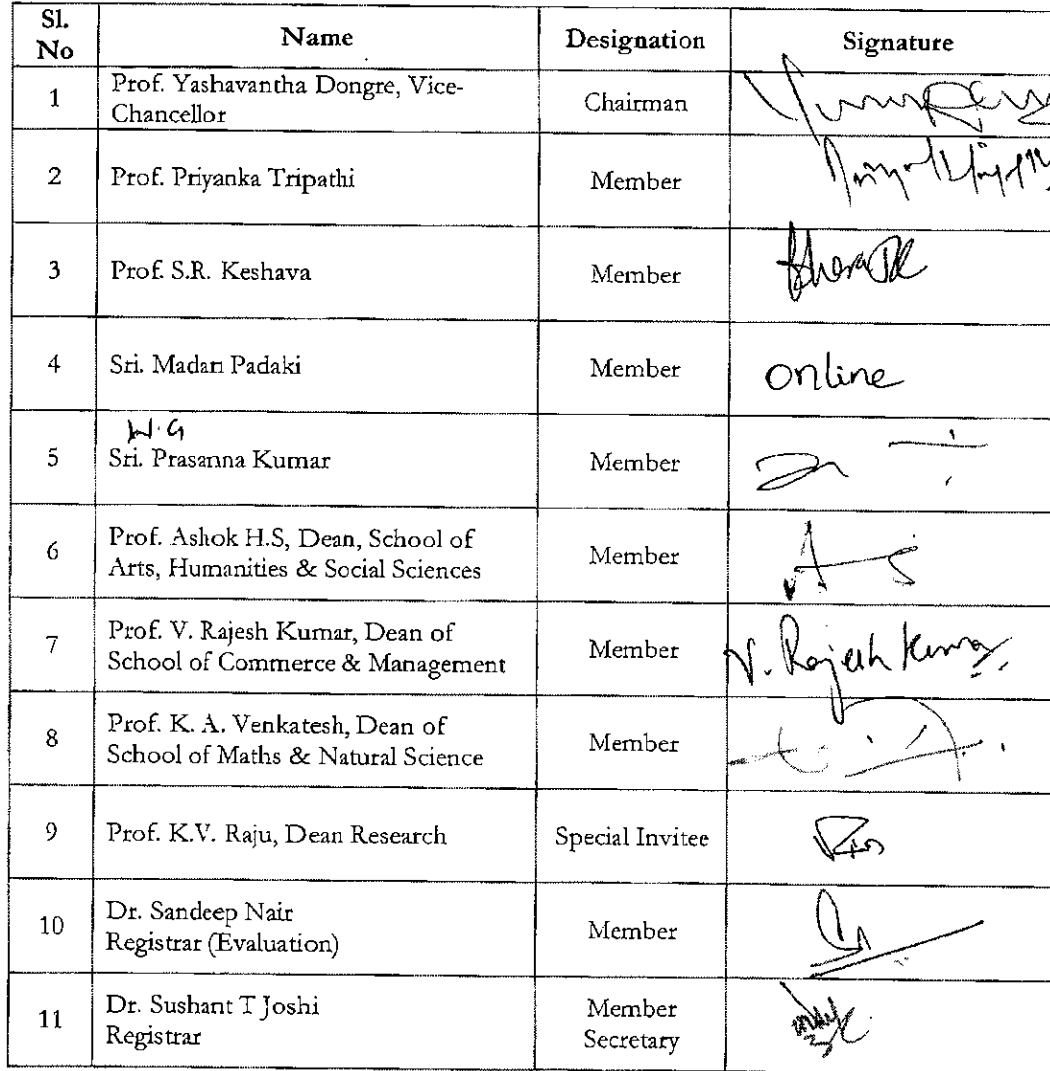 Sl.
No
Name
Designation
Signature
1
Prof. Yashavantha Dongre, Vice-
Chancellor
Chairman
2
Prof. Priyanka Tripathi
Member
3
Prof. S.R. Keshava
Member
4
Sri. Madan Padaki
Member
online
W.G
5
Sri. Prasanna Kumar
Member
6
Prof. Ashok H.S, Dean, School of
Arts, Humanities & Social Sciences
Member
7
Prof. V. Rajesh Kumar, Dean of
School of Commerce & Management
Member
V. Rajesh Kumar
8
Prof. K. A. Venkatesh, Dean of
School of Maths & Natural Science
Member
9
Prof. K.V. Raju, Dean Research
Special Invitee
10
Dr. Sandeep Nair
Registrar (Evaluation)
Member
11
Dr. Sushant T Joshi
Registrar
Member
Secretary